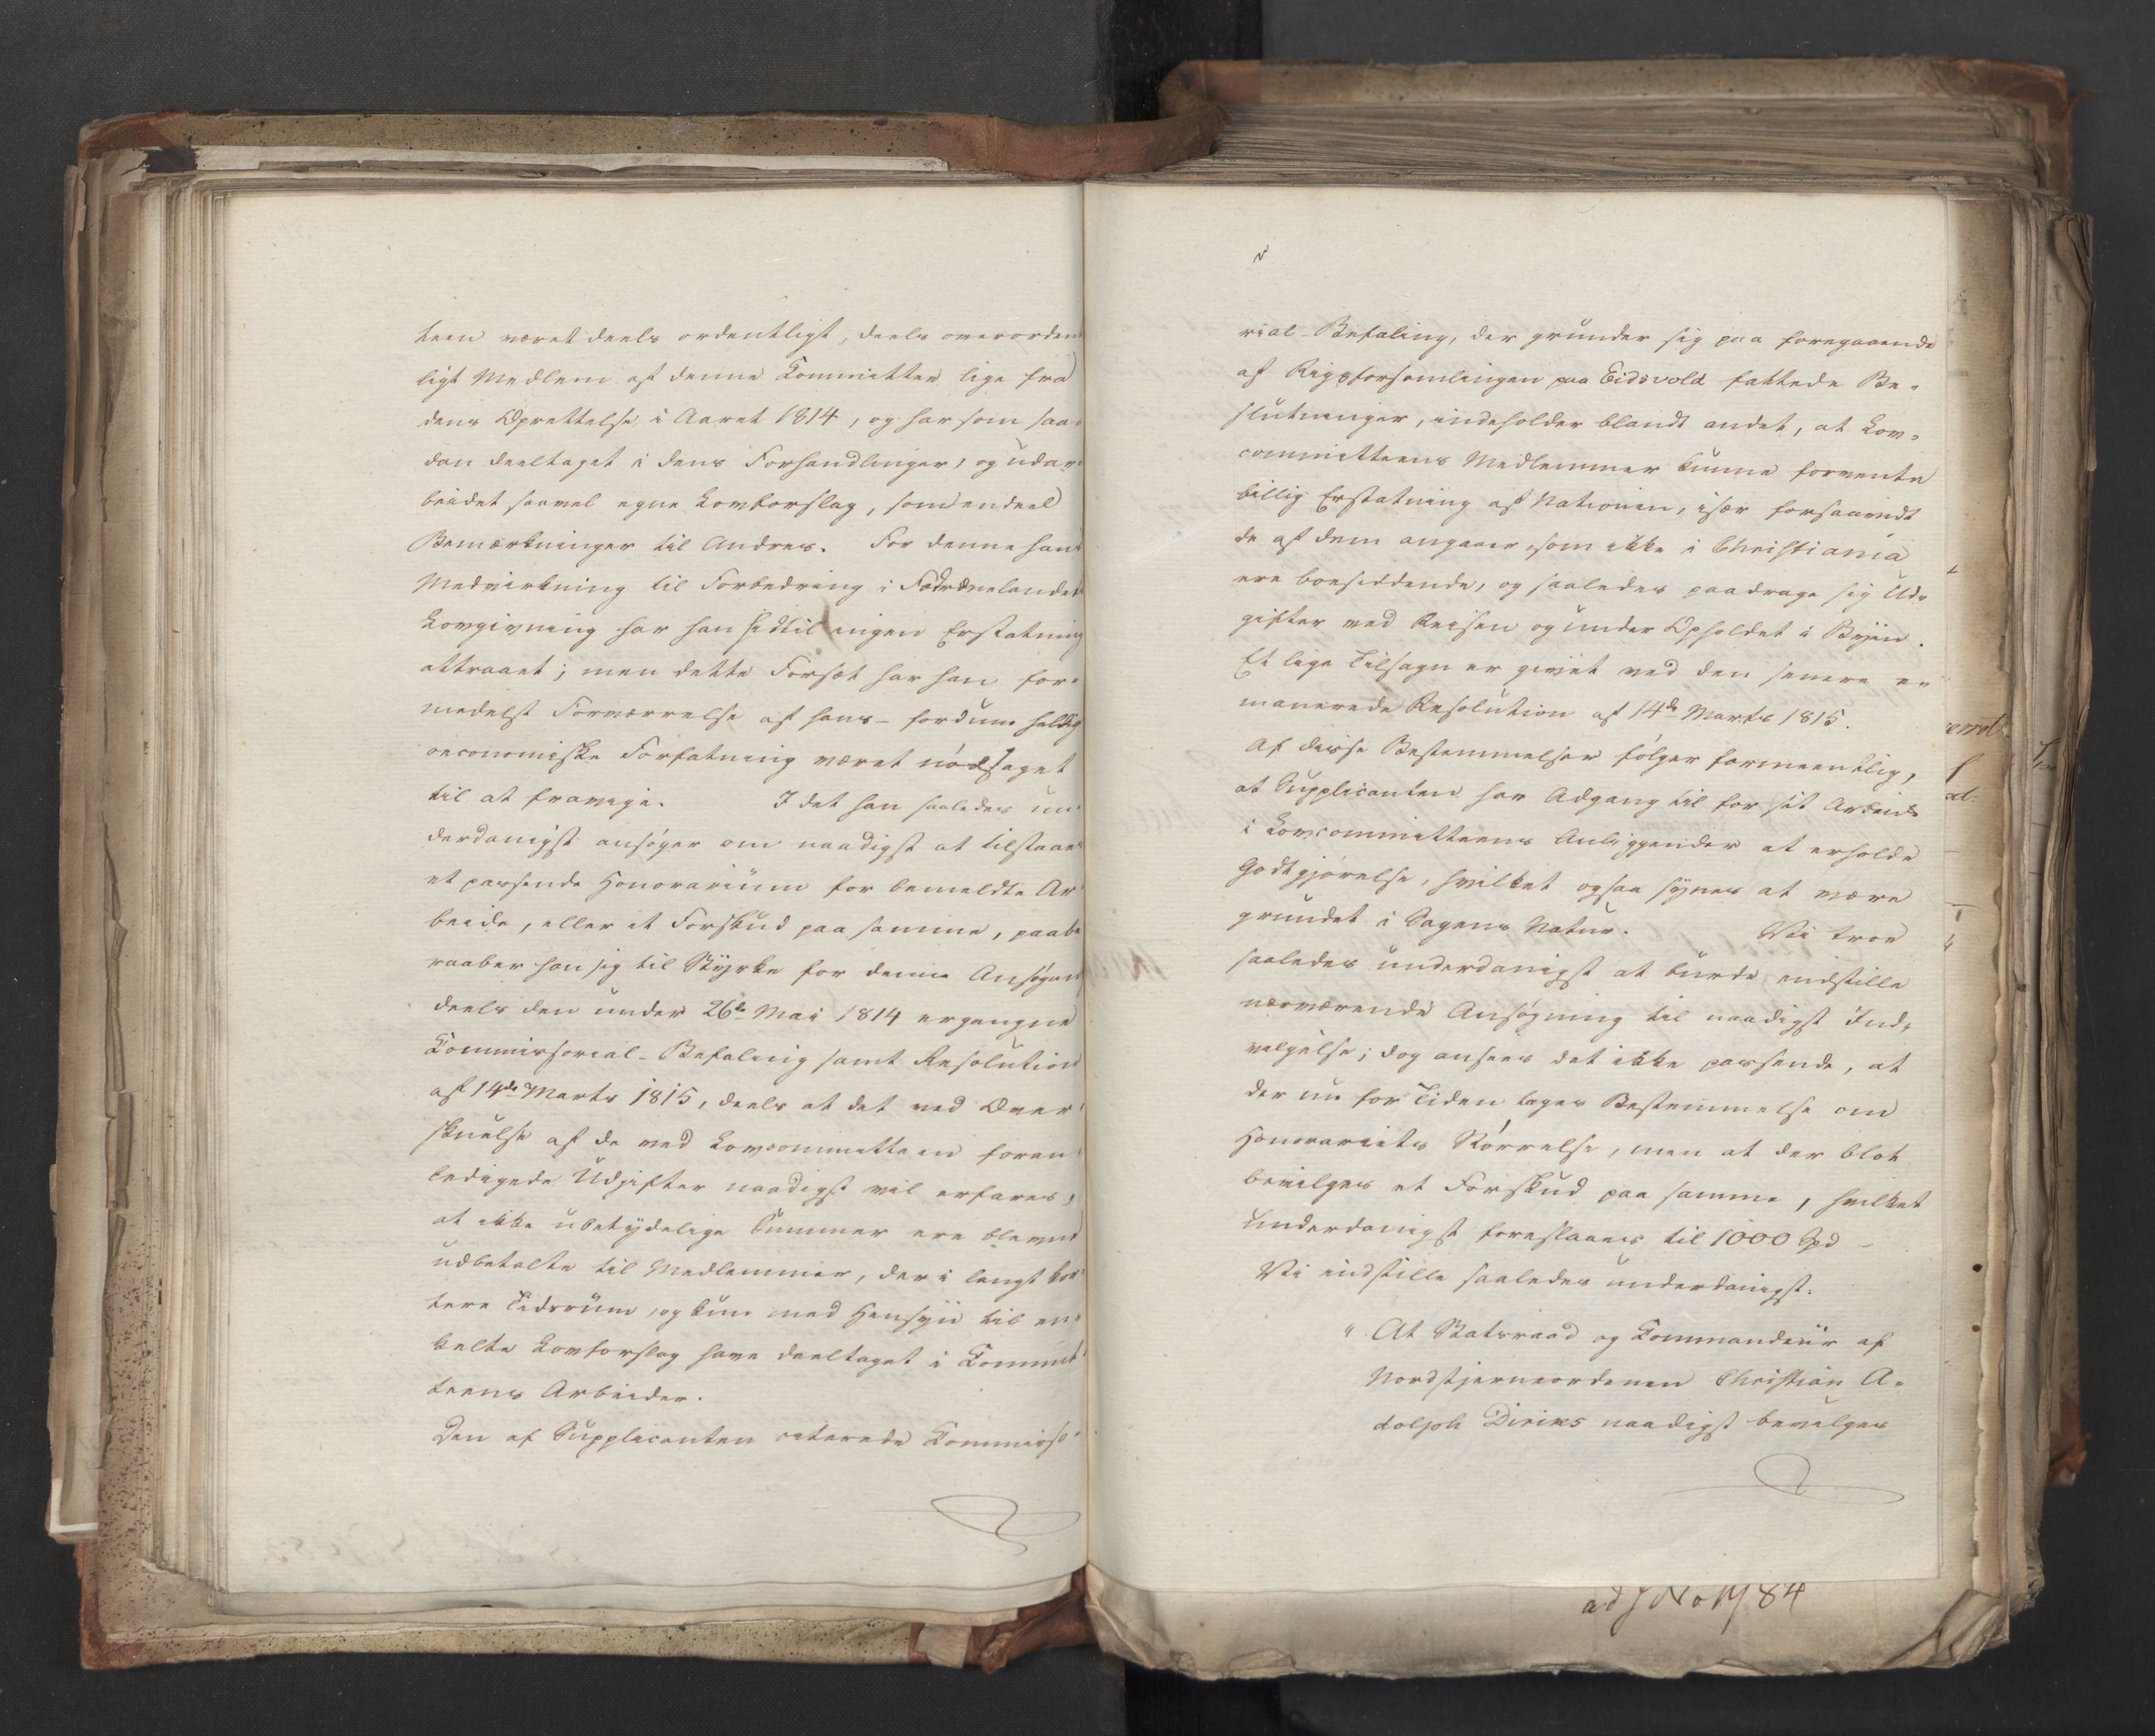 teen været deels ordentligt, deels overorden
ligt Medlem af denne Committee lige fra
dens Oprettelse i Aaret 1814, og har som saa-
dan deeltaget i dens Forhandlinger, og udar-
beidet saavel egne Lovforslag, som endeel
Bemærkninger til Andres. For denne hans
Medvirkning til Forbedring i Fædrenelandets
Lovgivning har han hidtil ingen Erstatning
attraaet; men dette Forsæt har han for-
medelst Forværrelse af hans fordum heldig
oeconomiske Forfatning været nödsaget
til at fravige. I det han saaledes un-
derdanigst ansöger om naadigst at tilstaaes
et passende Honorarium for bemeldte Ar-
beide, eller et Forskud paa samme, paabe
raaber han sig til Styrke for denne Ansögen
deels den under 26de Mai 1814 ergangne
Commissorial-Befaling samt Resolution
af 14de Marts 1815, deels at det ved Over-
skuelse af de ved Lovcommitteen foran-
ledigede Udgifter naadigst vil erfares,
at ikke ubetydelige Summer ere blevne
udbetalte til Medlemmer, der i langt kor-
tere Tidsrum, og kun med Hensyn til en-
kelte Lovforslag have deeltaget i Commit-
teens Arbeider.
Den af Supplicanten citerede Commisso-
rial-Befaling, der grunder sig paa foregaaende
af Rigsforsamlingen paa Eidsvold fattede Be-
slutninger, indeholder blandt andet, at Lov-
committeens Medlemmer kunne forvente
billig Erstatning af Nationen, især forsaavidt
de af dem angaaer, som ikke i Christiania
ere boesiddende, og saaledes paadrage sig Ud-
gifter ved Reisen og under Opholdet i Byen.
Et lige Tilsagn er givet ved den senere e-
manerede Resolution af 14de Marts 1815.
Af disse Bestemmelser fölger formeentlig,
at Supplicanten har Adgang til for sit Arbeide
i Lovcommitteens Anliggender at erholde
Godtgjörelse, hvilket ogsaa synes at være
grundet i Sagens Natur. Vi troe
saaledes underdanigst at burde indstille
nærværende Ansögning til naadigst Ind-
vilgelse; dog ansees det ikke passende, at
der nu for Tiden tages Bestemmelse om
Honorariets Störrelse, men at der blot
bevilges et Forskud paa samme, hvilket
underdanigst foreslaaes til 1000 Spd
Vi indstille saaledes underdanigst:
"At Statsraad og Commandeur af
Nordstjerneordenen Christian A-
dolph Diriks naadigst bevilges
ad J No 1484